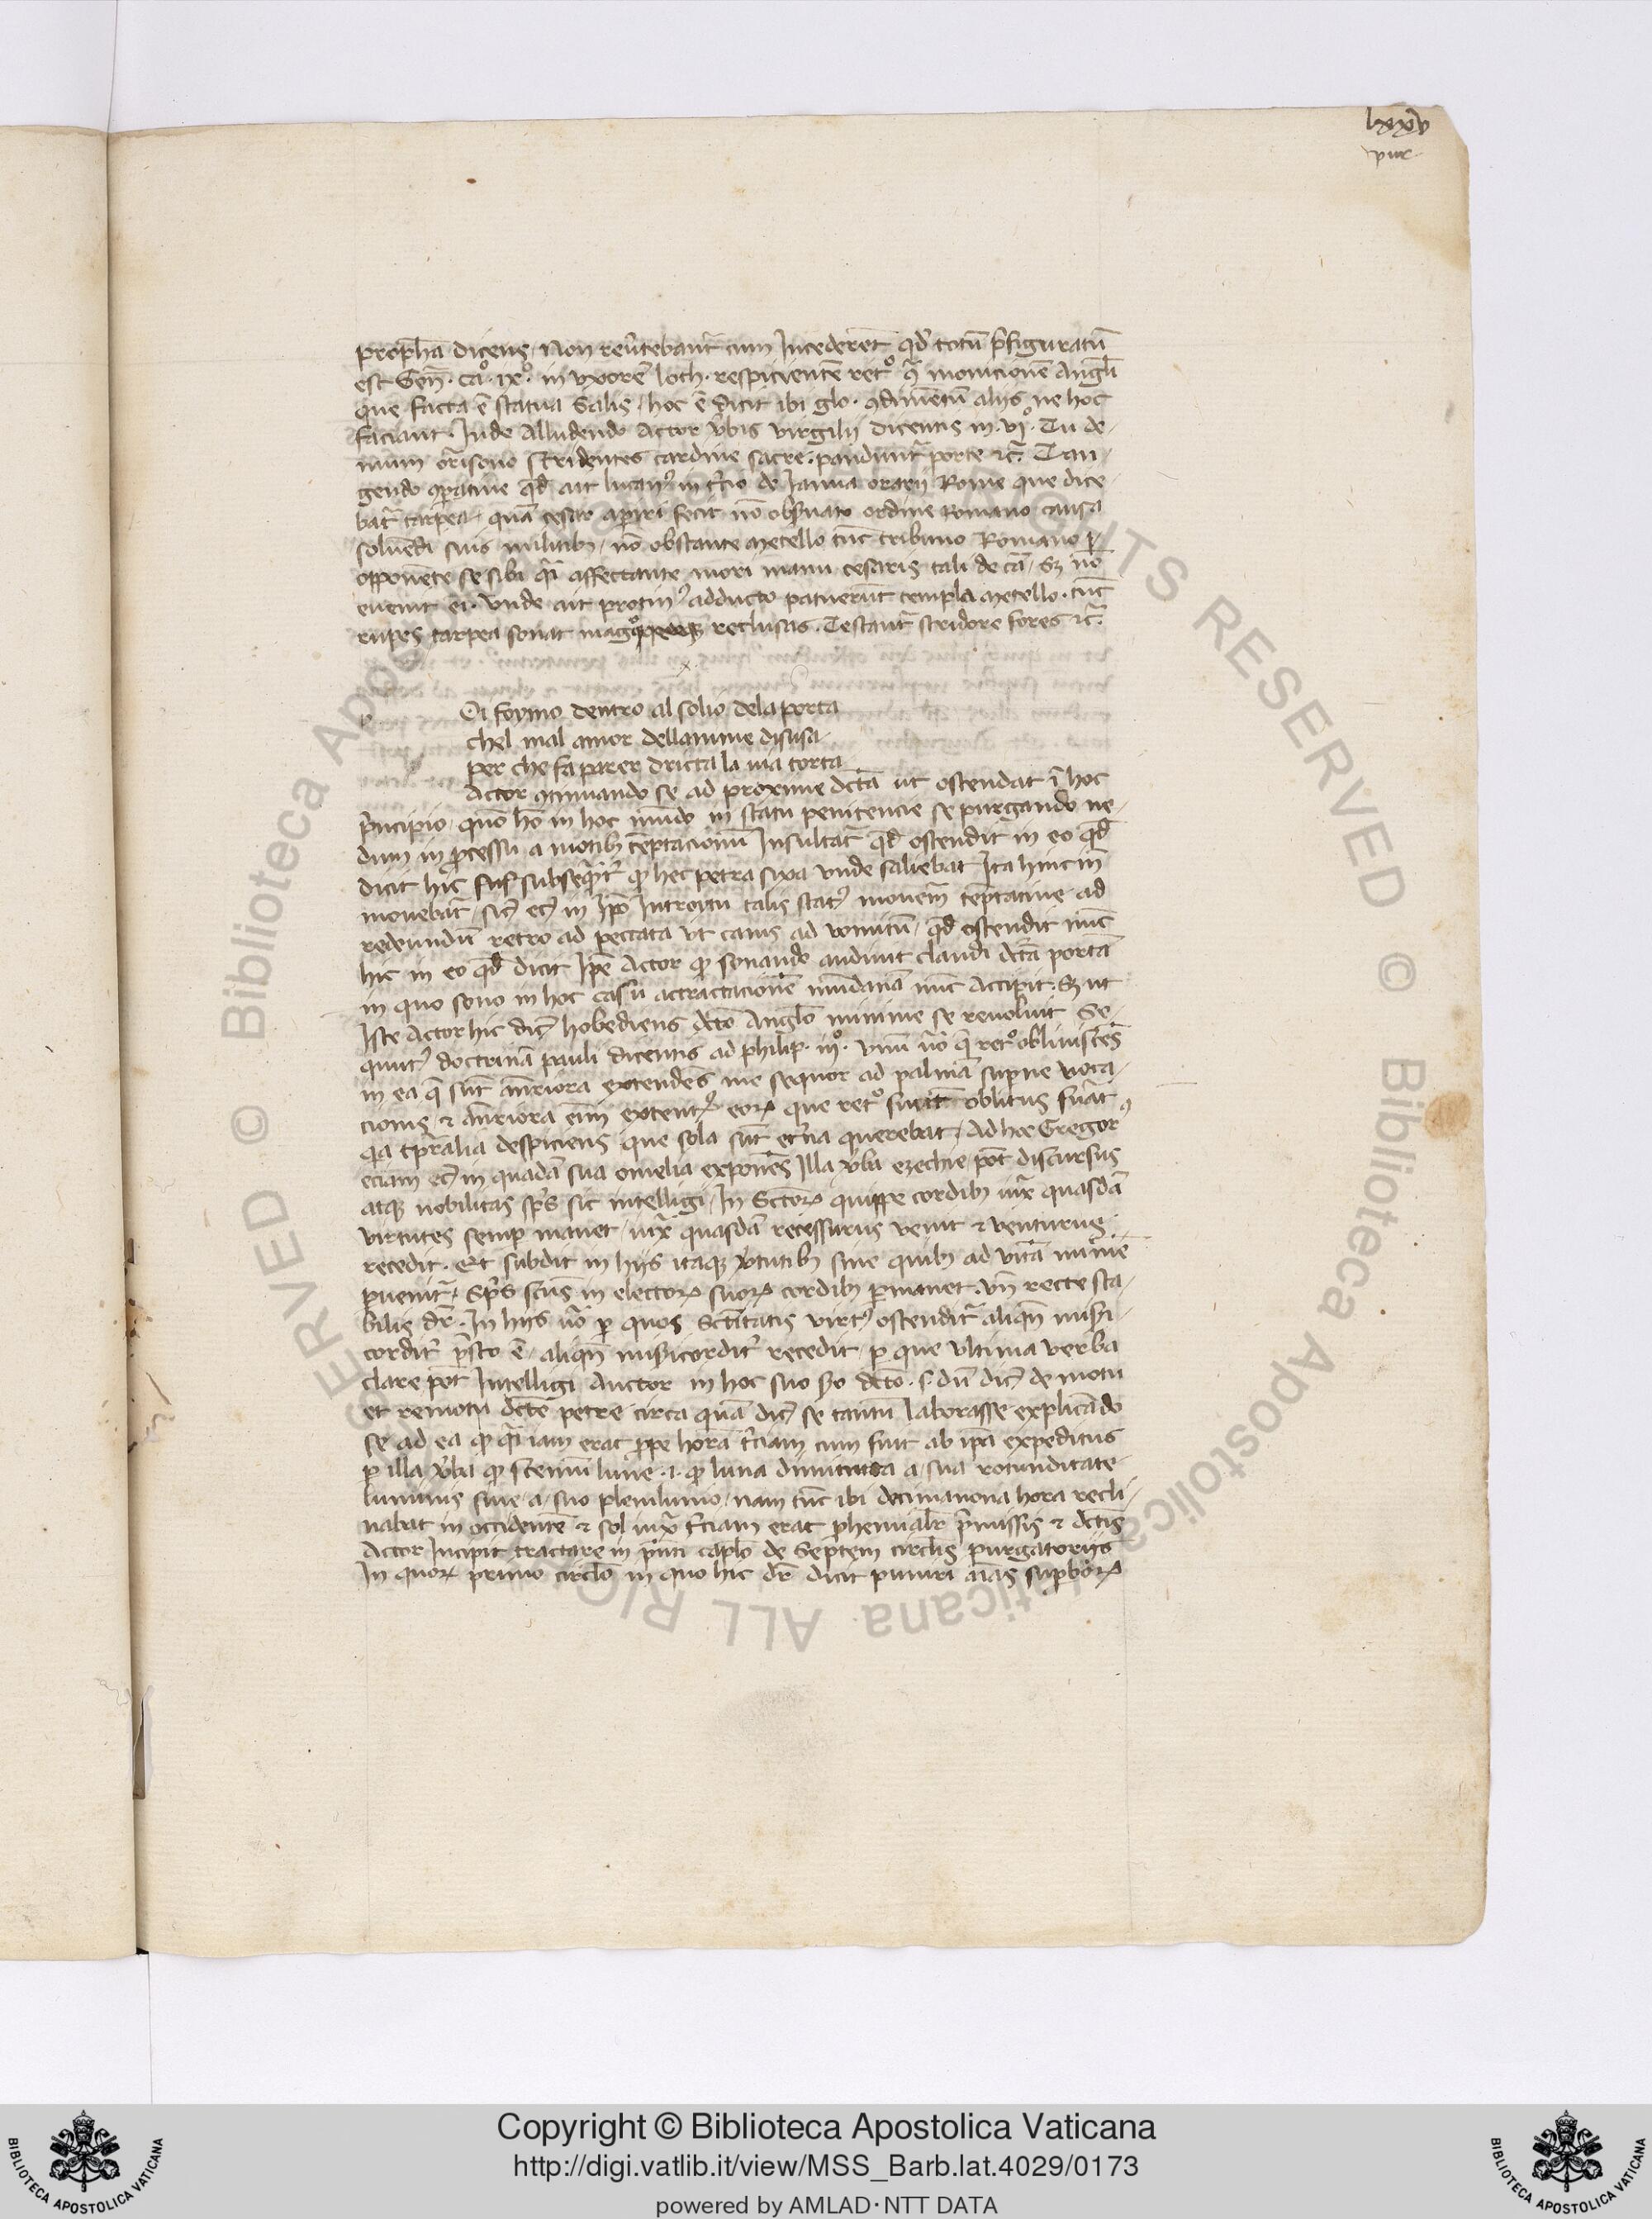 lxxv
pur.
proph̄a dicens, Non rev̄tebant᷑ cum Incederet qd̄ totū p̄figuratū
est Gen̄. ca.º .ix.º in vxorē loch. respicientē retº 9ᵃ monicionē Angl̄i
que facta ē statua Salis, hoc ē dicit ibi glo. 9dimētū aliis ne hoc
faciant. Inde Alludendo Actor v̄bis virgilij dicentis in .vjº. Tu de-
mum orrisono stridentes cardine sacre. pandunt᷑ porte ⁊c̄. Tan-
gendo 9paratiue qd̄ ait lucanꝰ in t̄cio de Ianua erarij Rome que dice
bat᷑ tarpea, quā cesar apiri fecit nō obs̄uato ordine Romano causa
soluēdi suis militibꝫ, nō obstante metello tūc tribuno Romano ꝑ
opponēte se sibi q̄i affectante mori manu cesaris tali de cā, Sꝫ nō
euenit ei. Vnde ait protinꝰ adducto patuerūt templa metello. tūc
rupes tarpea sonat magº reclusas. Testant᷑ stridore fores ⁊c̄.
x.
P. Oi foymo dentro al solio dela porta
chel mal amor dellanime disusa.
per che fa parer dricta la uia torta
Actor 9tinuando se ad proxime dc̄ta ut ostendat ī hoc
p̄ncipio, quō hō in hoc mūdo in statu penitencie se purgando ne-
dum in ꝓcessu a motibꝫ tēptacionū Insultat᷑ qd̄ ostendit in eo qd̄
dicit hic sus subseq̄nt᷑ qꝫ hec petra fixa vnde saliebat Ita hinc in
mouebat᷑, sic̄ ec̄ in Ip̄o Introytu talis statꝰ mouem᷑ tēptatiue ad
redeundū retro ad peccata vt canis ad vomitū, qd̄ ostendit nūc
hic in eo qd̄ dicit Ip̄e Actor qꝫ sonando audiuit claudi dc̄tā portā
in quo sono in hoc casu attractacionē mūdanā nūc Accipit. Sꝫ ut
Iste Actor hic dic̄ hobediens dc̄to Angl̄o minime se reuoluit Se-
quutꝰ doctrinā pauli dicentis ad philip. iijº. Vnū v̄o q̄ retº obliuiscēs
in ea q̄ sūt ant̄iora extendēs me sequor ad palmā sup̄ne voca-
cionis, ⁊ ant̄iora eni᷑ extentꝰ eoꝝ que retº sunt oblitus fuat
qa tp̄ralia despiciens que sola sūt et̄na querebat, Ad hoc Gregorꝰ
eciam ec̄ in quadā sua omelia exponēs Illa v̄ba ezechie pōt discursus
atqꝫ nobilitas sp̄s sic intelligi, In Sctōꝝ quippe cordibꝫ iux᷑ quasdā
virtutes semꝑ manet, iux᷑ quasdā recessurus venit ⁊ venturus
recedit. Et subdit in hijs itaqꝫ v̄tutibꝫ sine quibꝫ ad vitā minīe
ꝑuenit᷑, Sp̄s scūs in electoꝝ suoꝝ cordibꝫ ꝑmanet. vn̄ recte sta-
bilis dr̄. In hijs v̄o ꝑ quos Sctītatis virtꝰ ostendit᷑ aliqn̄ miseri-
cordit᷑ p̄sto ē, aliqn̄ misericordit᷑ recedit, ꝑ que vltima verba
clare pōt Intelligi Auctor in hoc suo dc̄to .s. dū dic̄ de motu
et remotu dc̄te petre circa quā dic̄ se tantū laborasse explicādo
se ad ea qꝫ q̄i iam erat ꝓpe horā t̄ciam cum fuit ab ip̄a expeditus
ꝑ illa v̄ba qꝫ scemū lune .i. qꝫ luna diminuta a sua rotunditate
luminis siue a suo plenilunio, nam tūc ibi decimanona hora recli-
nabat in occidentē ⁊ sol iux᷑ t̄ciam erat ꝓhemialr̄ p̄missis ⁊ dc̄tis
Actor Incipit tractare in p̄nti cap̄lo de Septem circlis purgatorijs
In quoꝝ primo circl̄o in quo hic dr̄ dicit puniri aīas suꝑboꝝ
Copyright © Biblioteca Apostolica Vaticana
http://digi.vatlib.it/view/MSS_Barb.lat.4029/0173
powered by AMLAD·NTT DATA
BIBLIOTECA APOSTOLICA VATICANA
BIBLIOTECA APOSTOLICA VATICANA
© Biblioteca Apostolica Vaticana ALL RIGHTS RESERVED